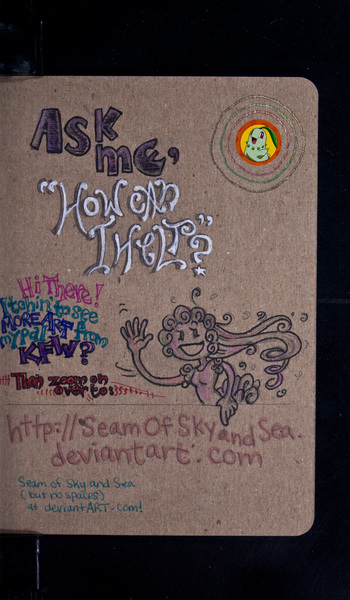 ASK
ME,
"HOW CAN
I HELP?"
Hi There!
Itchin' to see
MORE ART
my pal from
KFW?
Then zoom on
over to:
http://SeamOfSkyandSea.
deviantart.com
Seam of Sky and Sea
(but no spaces)
at deviantART.com!